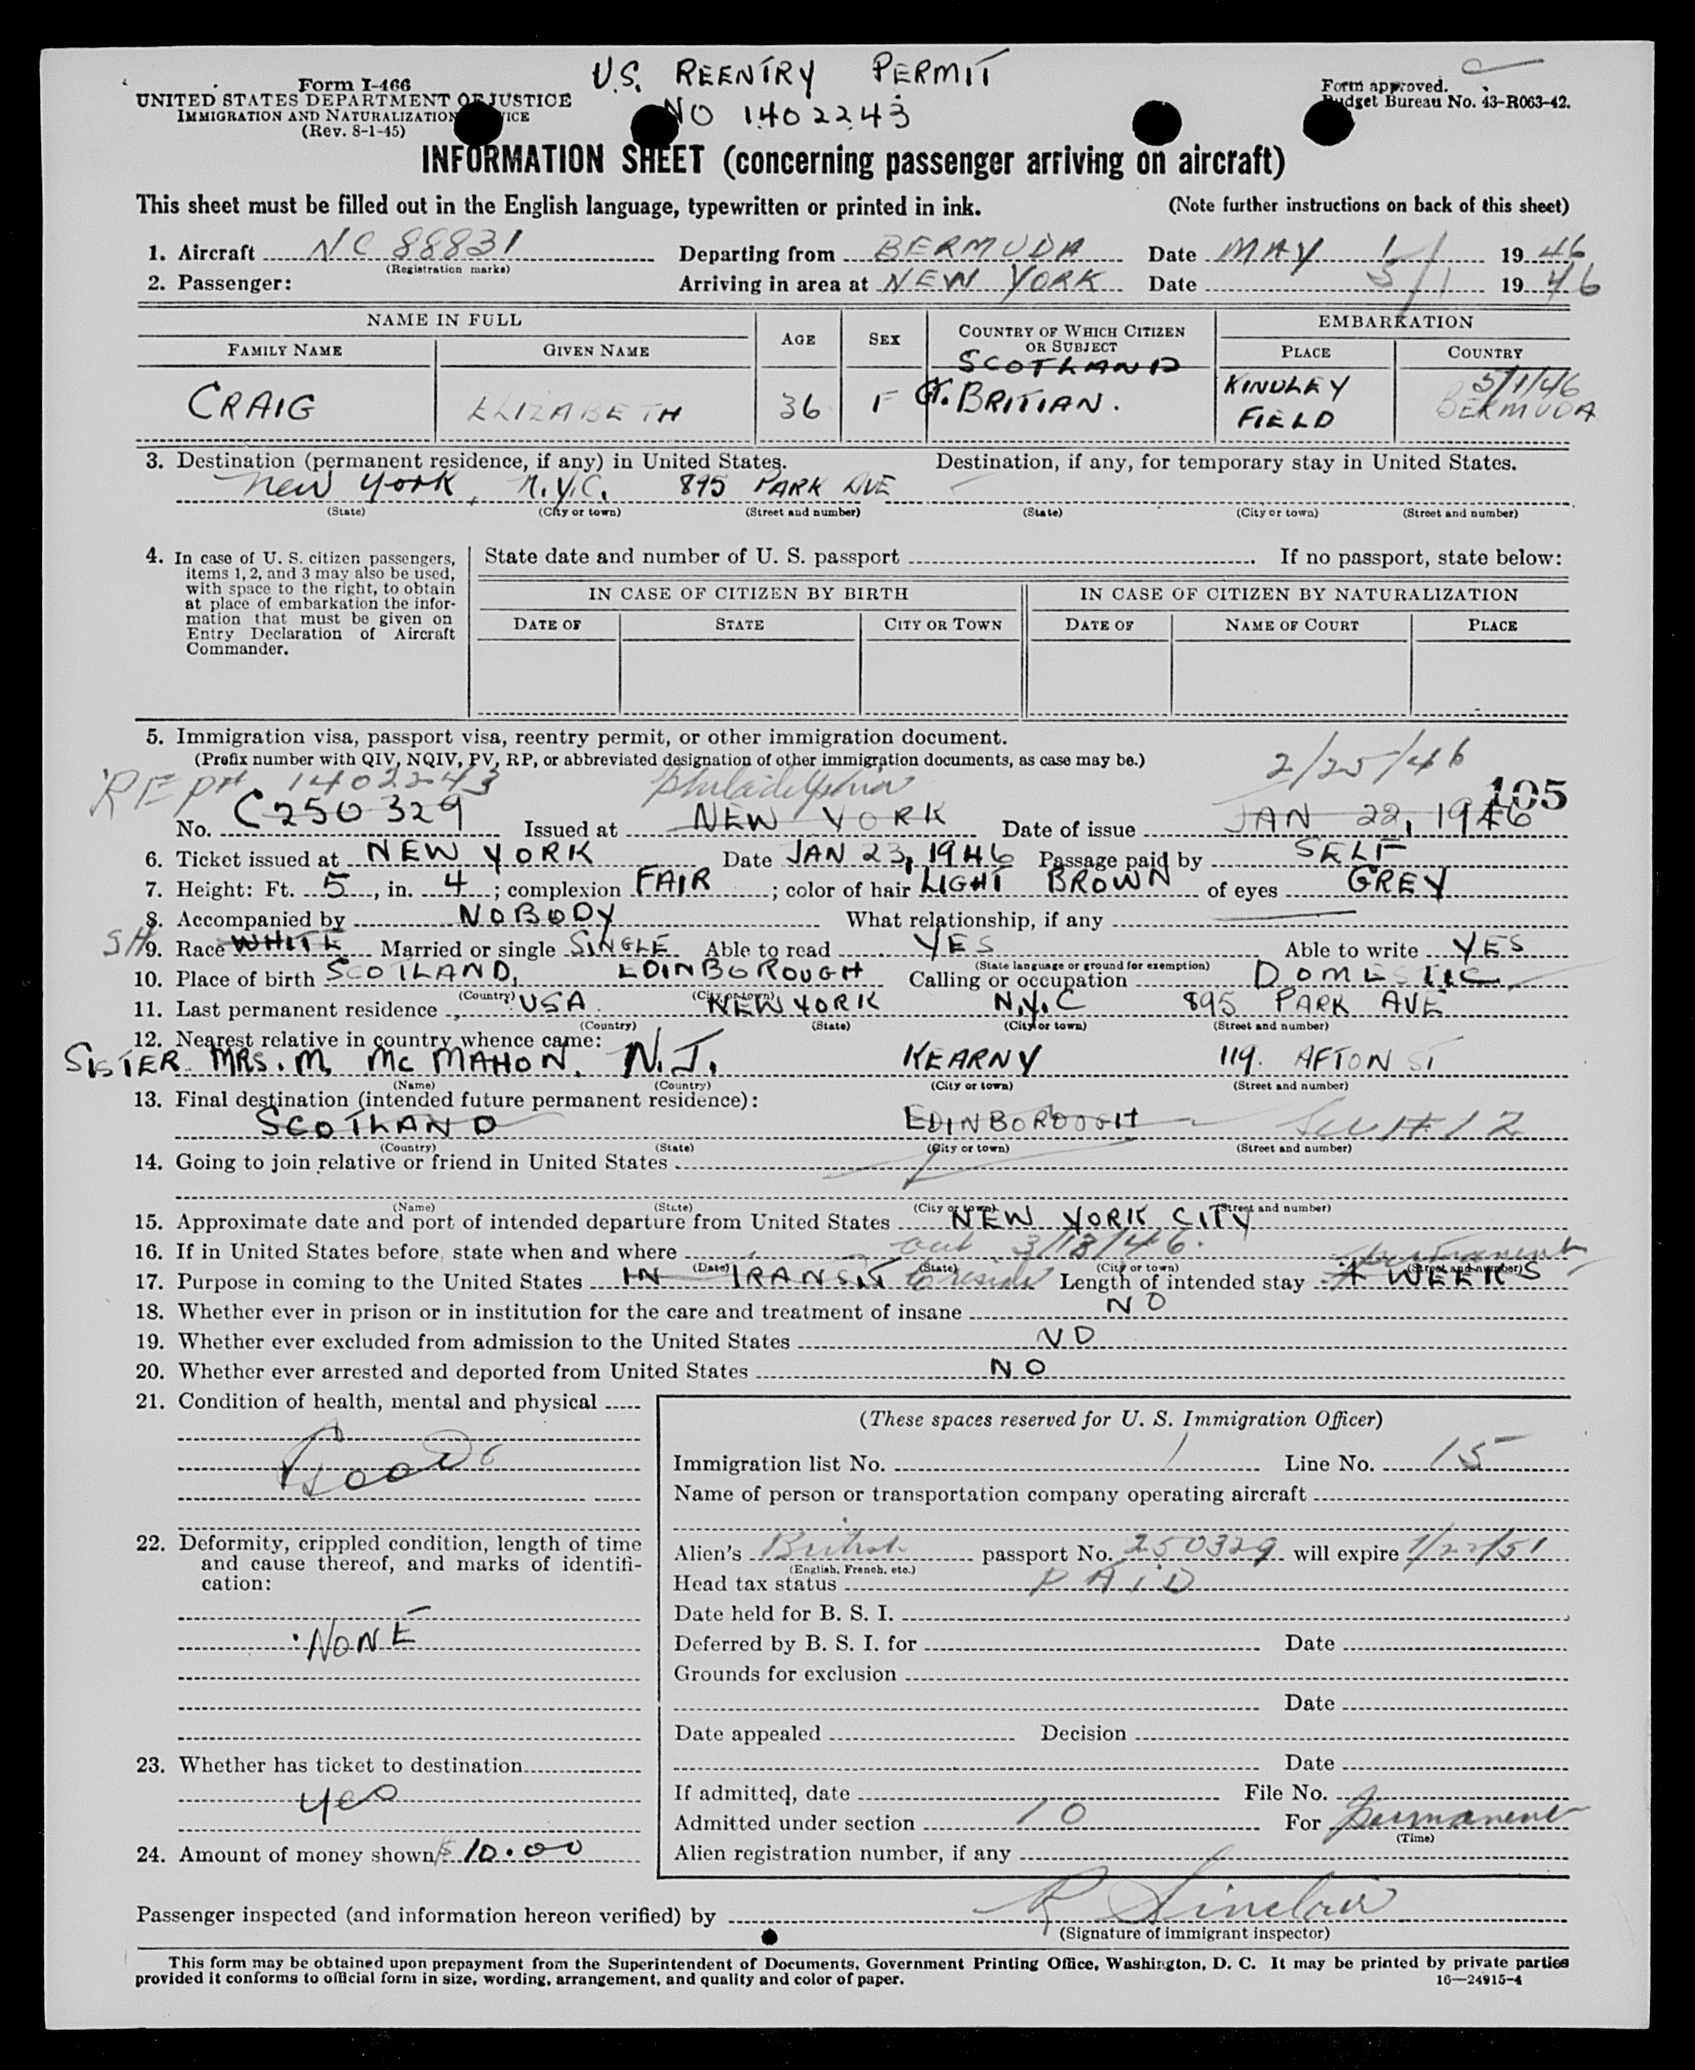 U.S. REENTRY PERMIT
NO 1402243
Form I-466
UNITED STATES DEPARTMENT OF JUSTICE
IMMIGRATION AND NATURALIZATION SERVICE
(Rev. 8-1-45)
Form approved.
Budget Bureau No. 43-R063-42.
INFORMATION SHEET (concerning passenger arriving on aircraft)
This sheet must be filled out in the English language, typewritten or printed in ink. (Note further instructions on back of this sheet)
1. Aircraft NC 88831 Departing from BERMUDA Date MAY 1 1946
(Registration marks)
2. Passenger: Arriving in area at NEW YORK Date 5/1 1946
NAME IN FULL AGE SEX COUNTRY OF WHICH CITIZEN OR SUBJECT EMBARKATION
FAMILY NAME GIVEN NAME PLACE COUNTRY
SCOTLAND
CRAIG ELIZABETH 36 F GT. BRITIAN. KINDLEY FIELD 5/1/46 BERMUDA
3. Destination (permanent residence, if any) in United States. Destination, if any, for temporary stay in United States.
New York, N.Y.C. 895 PARK AVE
(State) (City or town) (Street and number) (State) (City or town) (Street and number)
4. In case of U. S. citizen passengers, items 1, 2, and 3 may also be used, with space to the right, to obtain at place of embarkation the information that must be given on Entry Declaration of Aircraft Commander.
State date and number of U. S. passport If no passport, state below:
IN CASE OF CITIZEN BY BIRTH IN CASE OF CITIZEN BY NATURALIZATION
DATE OF STATE CITY OR TOWN DATE OF NAME OF COURT PLACE
5. Immigration visa, passport visa, reentry permit, or other immigration document.
(Prefix number with QIV, NQIV, PV, RP, or abbreviated designation of other immigration documents, as case may be.)
RE Pt 1402243 Philadelphia 2/25/46
105
No. C250329 Issued at NEW YORK Date of issue JAN 22, 1946
6. Ticket issued at NEW YORK Date JAN 23, 1946 Passage paid by SELF
7. Height: Ft. 5, in. 4; complexion FAIR; color of hair LIGHT BROWN of eyes GREY
8. Accompanied by NOBODY What relationship, if any
SH
9. Race WHITE Married or single SINGLE Able to read YES Able to write YES
(State language or ground for exemption)
10. Place of birth SCOTLAND, EDINBOROUGH Calling or occupation DOMESTIC
(Country) (City or town)
11. Last permanent residence USA NEW YORK N.Y.C 895 PARK AVE
(Country) (State) (City or town) (Street and number)
12. Nearest relative in country whence came:
SISTER MRS. M. MC MAHON. N.J. KEARNY 119. AFTON ST
(Name) (Country) (City or town) (Street and number)
13. Final destination (intended future permanent residence):
SCOTLAND EDINBOROUGH See # 12
(Country) (State) (City or town) (Street and number)
14. Going to join relative or friend in United States
(Name) (State) (City or town) (Street and number)
15. Approximate date and port of intended departure from United States NEW YORK CITY
16. If in United States before, state when and where out 3/13/46.
(Date) (State) (City or town) (Street and number)
permanent
17. Purpose in coming to the United States IN TRANSIT to reside Length of intended stay 4 WEEKS
18. Whether ever in prison or in institution for the care and treatment of insane NO
19. Whether ever excluded from admission to the United States NO
20. Whether ever arrested and deported from United States NO
21. Condition of health, mental and physical
Good
22. Deformity, crippled condition, length of time and cause thereof, and marks of identification:
NONE
23. Whether has ticket to destination
yes
24. Amount of money shown $10.00
(These spaces reserved for U. S. Immigration Officer)
Immigration list No. 1 Line No. 15
Name of person or transportation company operating aircraft
Alien's British passport No. 250329 will expire 1/22/51
(English, French, etc.)
Head tax status PAID
Date held for B. S. I.
Deferred by B. S. I. for Date
Grounds for exclusion
Date
Date appealed Decision
Date
If admitted, date File No.
Admitted under section 10 For Permanent
(Time)
Alien registration number, if any
Passenger inspected (and information hereon verified) by R Sinclair
(Signature of immigrant inspector)
This form may be obtained upon prepayment from the Superintendent of Documents, Government Printing Office, Washington, D. C. It may be printed by private parties
provided it conforms to official form in size, wording, arrangement, and quality and color of paper. 16—24915-4